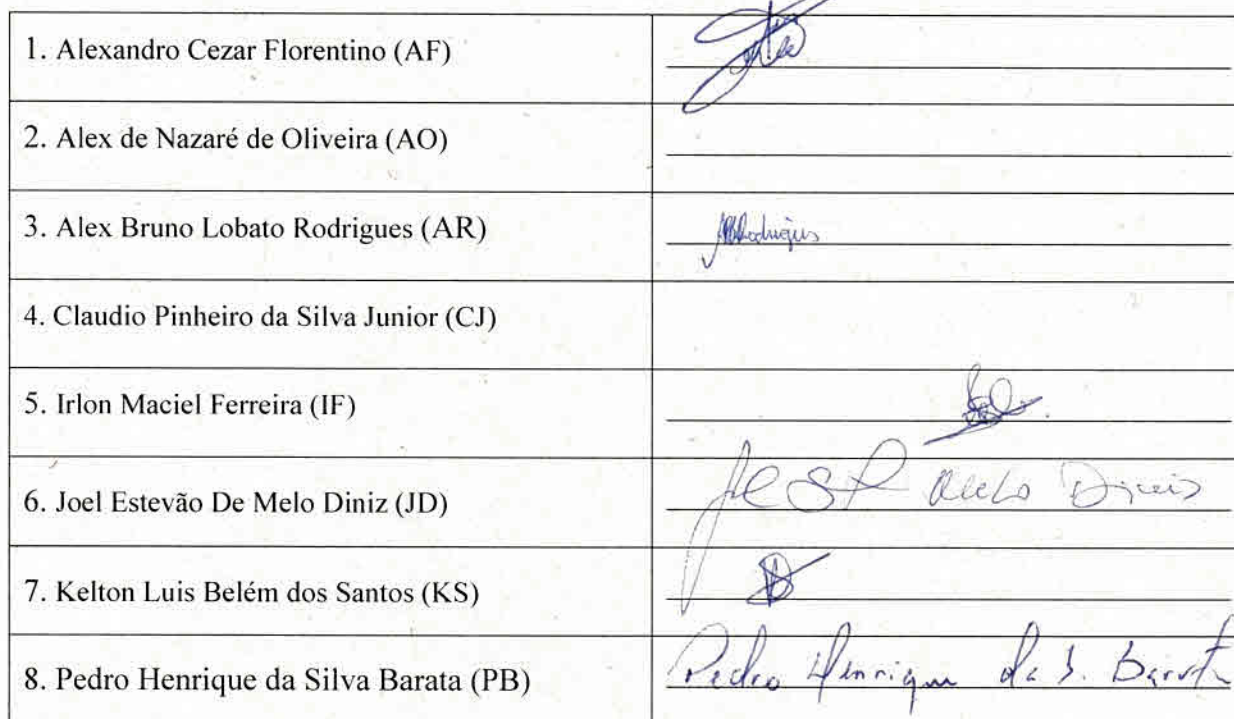 1. Alexandro Cezar Florentino (AF)
2. Alex de Nazaré de Oliveira (AO)
3. Alex Bruno Lobato Rodrigues (AR) ABRodrigues
4. Claudio Pinheiro da Silva Junior (CJ)
5. Irlon Maciel Ferreira (IF)
6. Joel Estevão De Melo Diniz (JD) Melo Diniz
7. Kelton Luis Belém dos Santos (KS)
8. Pedro Henrique da Silva Barata (PB) Pedro Henrique da S. Barata